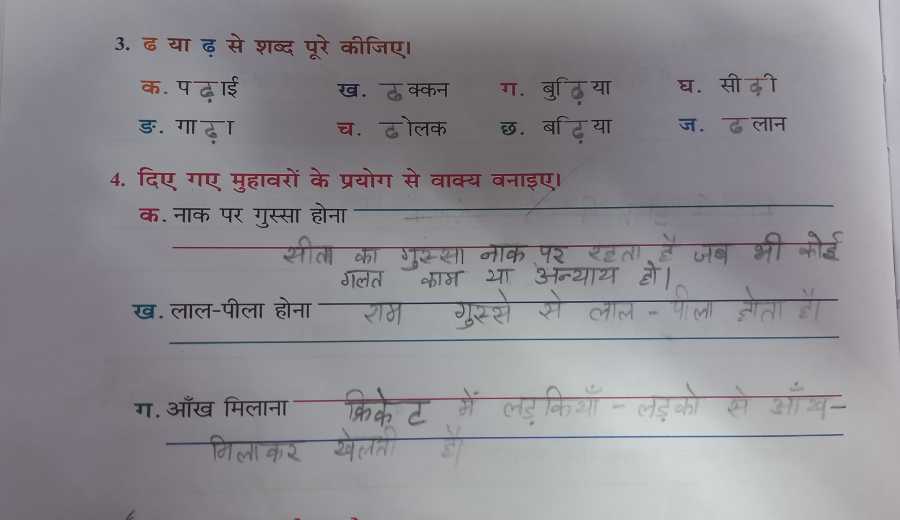 3. ढ या ढ़ से शब्द पूरे कीजिए।
क. पढ़ाई ख. ढक्कन ग. बुढ़िया घ. सीढ़ी
ङ. गाढ़ा च. ढोलक छ. बढ़िया ज. ढलान
4. दिए गए मुहावरों के प्रयोग से वाक्य बनाइए।
क. नाक पर गुस्सा होना
सीता का गुस्सा नाक पर रहता है जब भी कोई
गलत काम या अन्याय हो।
ख. लाल-पीला होना राम गुस्से से लाल - पीला होता है।
ग. आँख मिलाना क्रिकेट में लड़कियाँ - लड़को से आँख -
मिलाकर खेलती है।